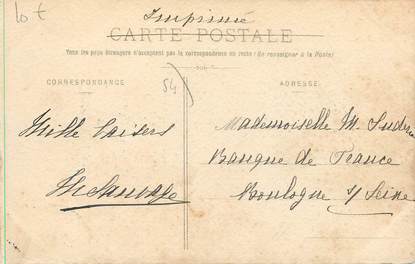 10 €
Imprimé
CARTE POSTALE
Tous les pays étrangers n'acceptent pas la correspondance au recto (Se renseigner à la Poste)
CORRESPONDANCE
ADRESSE
54
Mille baisers
Mademoiselle M.
Banque de France
Boulogne s/ Seine